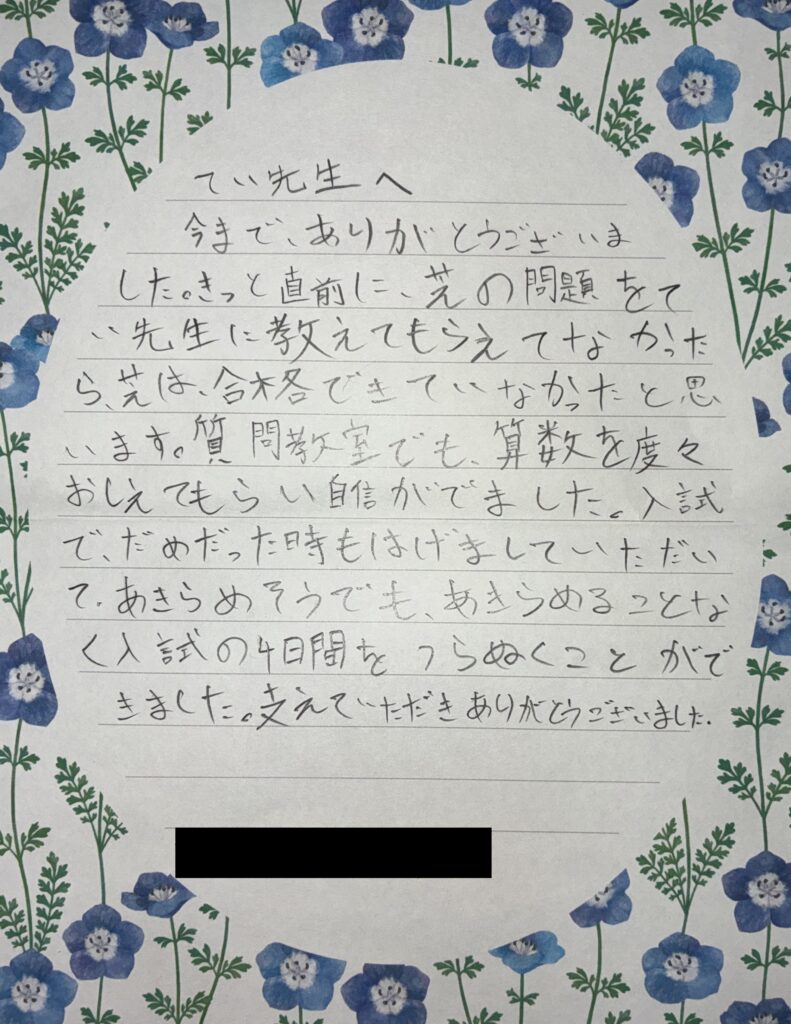 てい先生へ
今まで、ありがとうございま
した。きっと直前に、芝の問題をて
い先生に教えてもらえてなかった
ら、芝は、合格できていなかったと思
います。質問教室でも、算数を度々
おしえてもらい自信がでました。入試
で、だめだった時もはげましていただい
て、あきらめそうでも、あきらめることな
く入試の4日間をつらぬくことがで
きました。支えていただきありがとうございました.